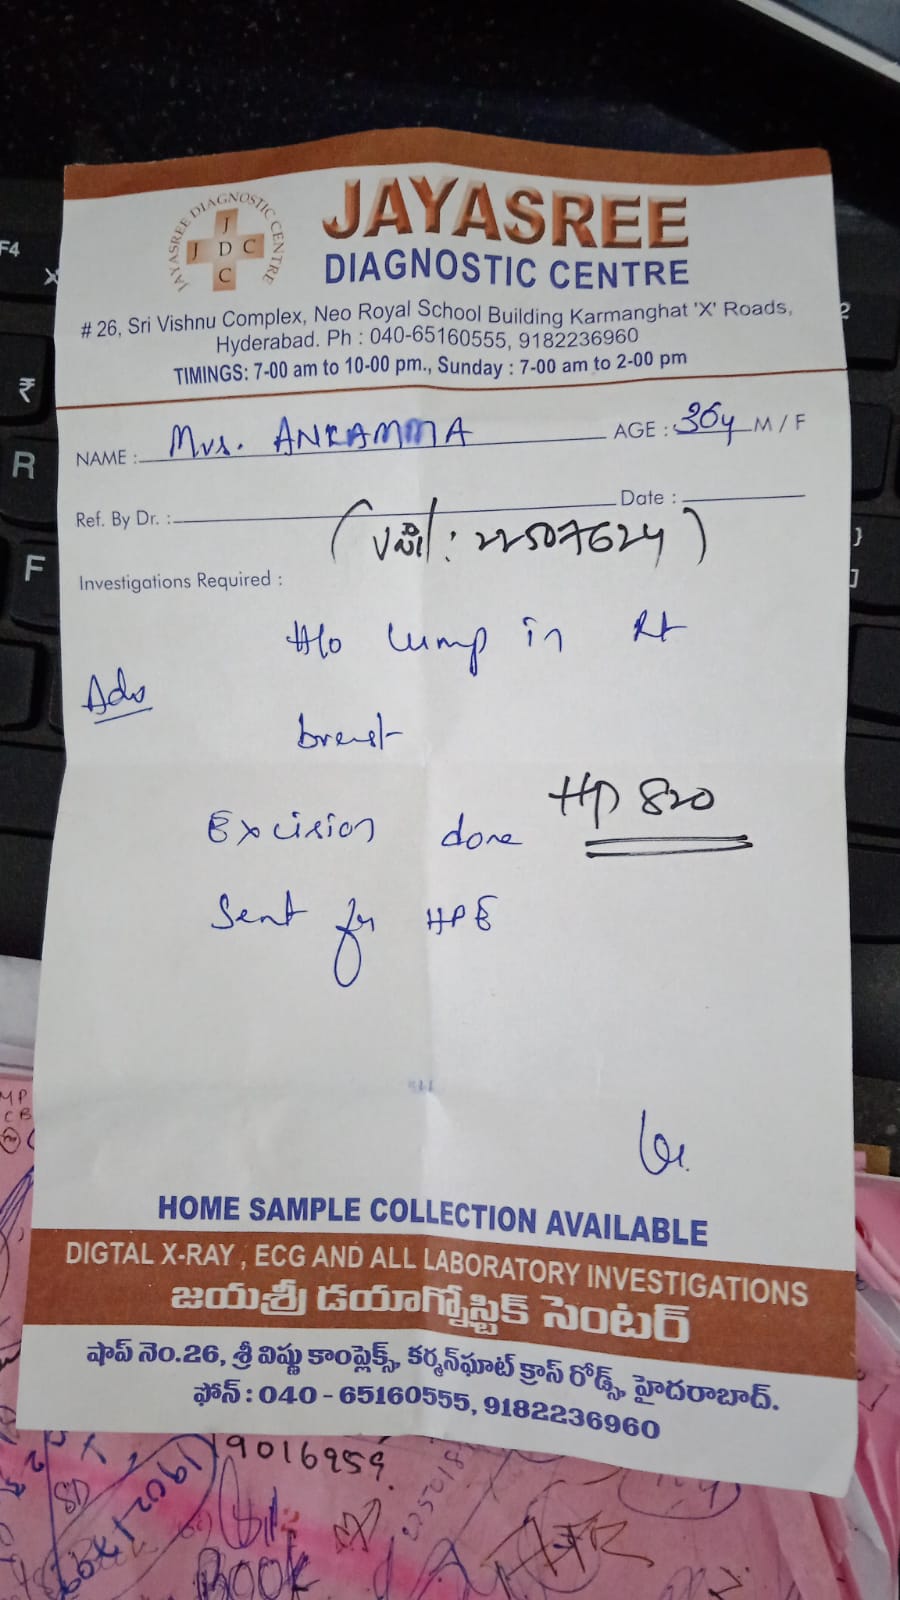 JAYASREE DIAGNOSTIC CENTRE
J
J D C
C
JAYASREE
DIAGNOSTIC CENTRE
# 26, Sri Vishnu Complex, Neo Royal School Building Karmanghat 'X' Roads,
Hyderabad. Ph : 040-65160555, 9182236960
TIMINGS: 7-00 am to 10-00 pm., Sunday : 7-00 am to 2-00 pm
NAME : Mrs. ANKAMMA AGE : 36y M / F
Ref. By Dr. : Date :
( : 22507624 )
Investigations Required :
H/o lump in Rt
Adv
breast
HP 820
Excision done
Sent for HPE
HOME SAMPLE COLLECTION AVAILABLE
DIGTAL X-RAY , ECG AND ALL LABORATORY INVESTIGATIONS
జయశ్రీ డయాగ్నోస్టిక్ సెంటర్
షాప్ నెం.26, శ్రీ విష్ణు కాంప్లెక్స్, కర్మన్‌ఘాట్ క్రాస్ రోడ్స్, హైదరాబాద్.
ఫోన్ : 040 - 65160555, 9182236960
F4
₹
R
F
9016959
BOOK